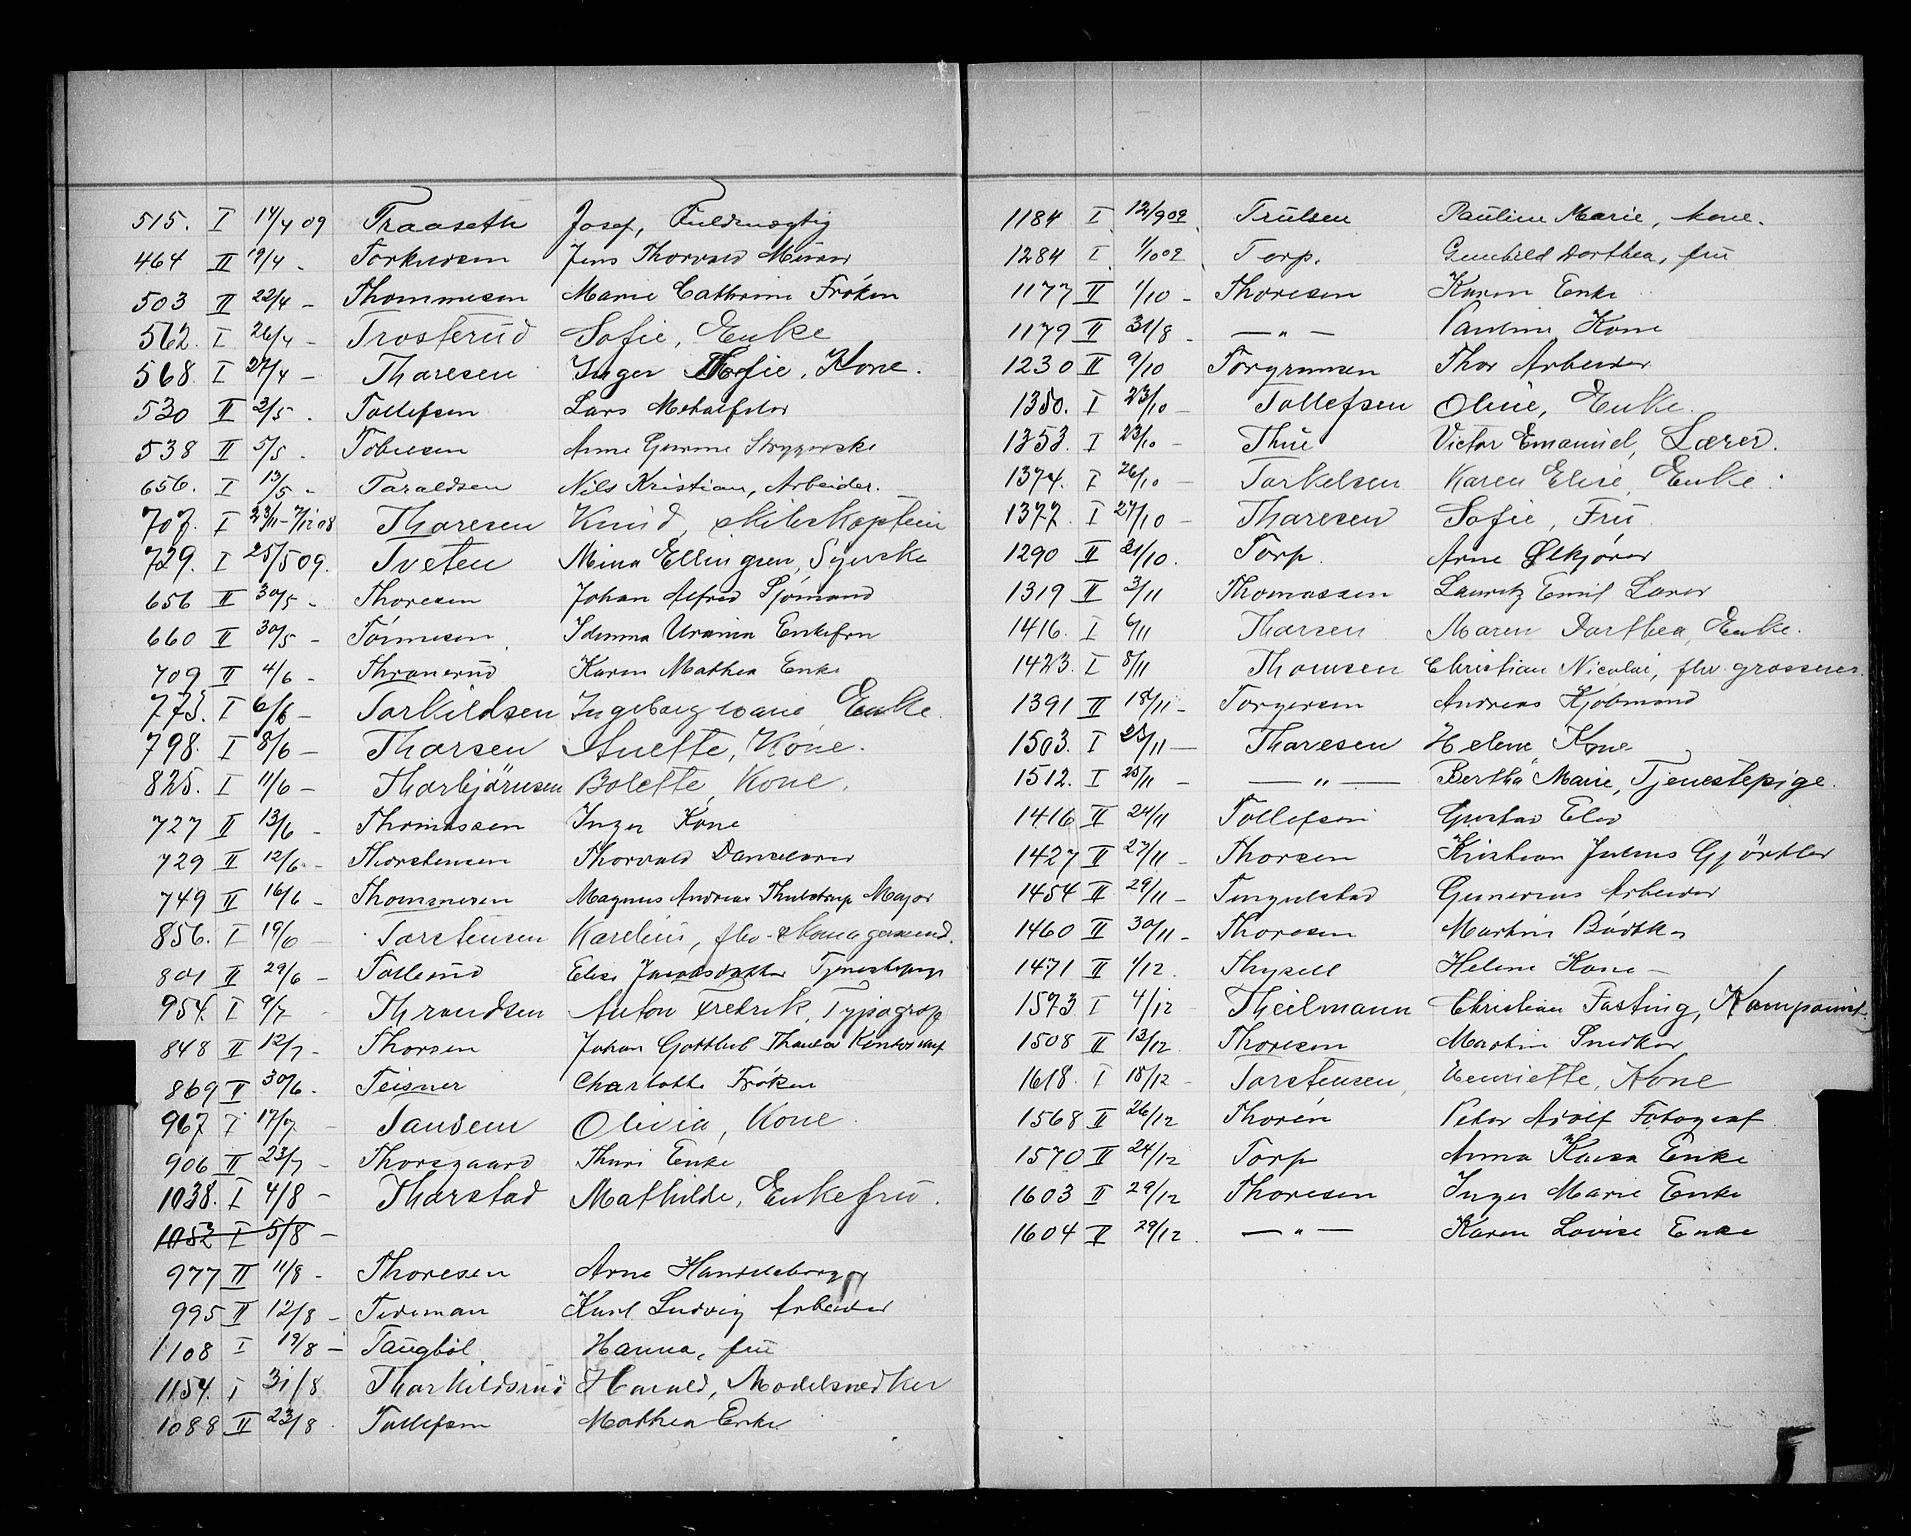 515. I 14/4 09 Traaseth Josef, Fuldmægtig
464 II 19/4 - Torkildsen Jens Thorvald Murer
503 II 22/4 - Thommesen Marie Cathrine Frøken
562. I 26/4 - Trosterud Sofie, Enke
568. I 27/4 - Thoresen Inger Sofie, Kone.
530 II 3/5 - Tollefsen Lars
538 II 5/5 - Tobiesen Anne Strygerske
656. I 13/5 - Taraldsen Nils Kristian, Arbeider.
707. I 23/11-7/12 08 Thoresen Knud, skibskaptein
729. I 25/5 09. Tveten Mina Ellingsen, Syerske
656 II 30/5 - Thoresen Johan Alfred Sjømand
660 II 30/5 - Tørmesen Idunna Urania Enkefru
709 II 4/6 - Thranerud Karen Mathea Enke
773. I 6/6 - Torkildsen Ingeborg Marie Enke.
798. I 8/6 - Thorsen Anette, Kone.
825. I 11/6 - Thorbjørnsen Bolette, Kone.
727 II 13/6 - Thomassen Inger Kone
729 II 12/6 - Thorstensen Thorvald Danselærer
749 II 16/6 - Thommesen Magnus Andreas Thulstrup Major
856. I 19/6 - Torstensen Karelius, fhv.
801 II 29/6 - Tollerud Elise Jacobsdatter Tjenestepige
954. I 9/7 - Throndsen Anton Fredrik, Typograf
848 II 12/7 - Thorsen Johan Gottlieb Thaulow
869 II 30/6 - Teisner Charlotte Frøken
967 I 17/7 - Tandem Olivia, Kone.
906 II 23/7 - Thorsgaard Thuri Enke
1038. I 4/8 - Thorstad Mathilde, Enkefru.
1052 I 5/8 -
977 II 11/8 - Thoresen Arne Handelsborger
995 II 12/8 - Tideman Karl Ludvig Arbeider
1108 I 19/8 - Taugbøl Hanna, fru
1154. I 31/8 Thorkildsrud Harald, Modelsnedker
1088 II 23/8 - Tollefsen Mathea Enke
1184 I 12/9 09 Trulsen Pauline Marie, kone.
1284 I 1/10 09 Torp. Gunhild Dorthea, fru
1177 II 1/10 - Thoresen Karen Enke
1179 II 31/8 - — " — Pauline Kone
1230 II 9/10 Torgrimsen Thor Arbeider
1350. I 23/10 - Tollefsen Oline, Enke.
1353. I 23/10 - Thue Victor Emanuel, Lærer.
1374. I 26/10 - Torkelsen Karen Elise, Enke.
1377. I 27/10 - Thoresen Sofie, Fru.
1290 II 21/10. Torp. Arne Ølkjører
1319 II 3/11 Thomassen Lauritz Emil Lærer
1416. I 6/11 Thorsen Maren Dorthea, Enke.
1423. I 8/11 Thomsen Christian Nicolai, fhv. grosserer.
1391 II 18/11 - Torgersen Andreas Kjøbmand
1503. I 23/11 - Thoresen Helene Kone
1512. I 25/11 - — " — Bertha Marie, Tjenestepige.
1416 II 24/11 Tollefsen Gustav Elev
1427 II 27/11 - Thorsen Kristian Julius Gjørtler
1454 II 29/11 - Tingulstad Gunerius Arbeider
1460 II 30/11 - Thoresen Martin Bødker
1471 II 1/12. Thysell Helene Kone -
1573 I 4/12 - Theilmann Christian Fasting, Kompanist
1508 II 13/12. Thoresen Martin Snedker
1618. I 18/12 - Torstensen, Henriette, Kone
1568 II 26/12 Thorén Peter Adolf Fotograf
1570 II 24/12 Torp Anna Kaisa Enke
1603 II 29/12 Thoresen Inger Marie Enke
1604 II 29/12. — " — Karen Lovise Enke